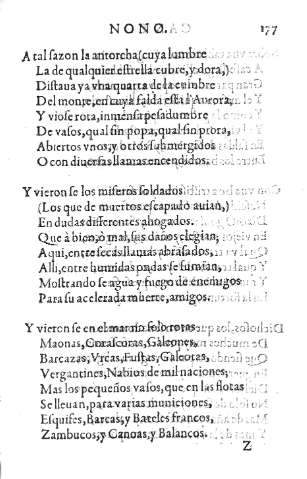 NONO. 177
A tal sazon la antorcha (cuya lumbre
La de qualquier estrella cubre, y dora,)
Distaua ya vna quarta de la cumbre
Del monte, en cuya falda està l'Aurora,
Y viose rota, inmensa pesadumbre
De vasos, qual sin popa, qual sin prora,
Abiertos vnos, y otros submergidos
O con diuersas llamas encendidos.
Y vieron se los miseros soldados
(Los que de muertos escapado auian,)
En dudas differentes ahogados.
Que à bien, ò mal, sus daños elegian;
Aqui, entre secas llamas abrasados,
Alli, entre humidas ondas se sumian,
Mostrando se agua y fuego de enemigos
Para su acelerada muerte, amigos.
Y vieron se en el marino solo rotas
Maonas, Corascoras, Galeones,
Barcazas, Vrcas, Fustas, Galeotas,
Vergantines, Nabios de mil naciones;
Mas los pequeños vasos, que en las flotas
Se lleuan, para varias municiones,
Esquifes, Barcas, y Bateles francos,
Zambucos, y Canoas, y Balancos.
Z